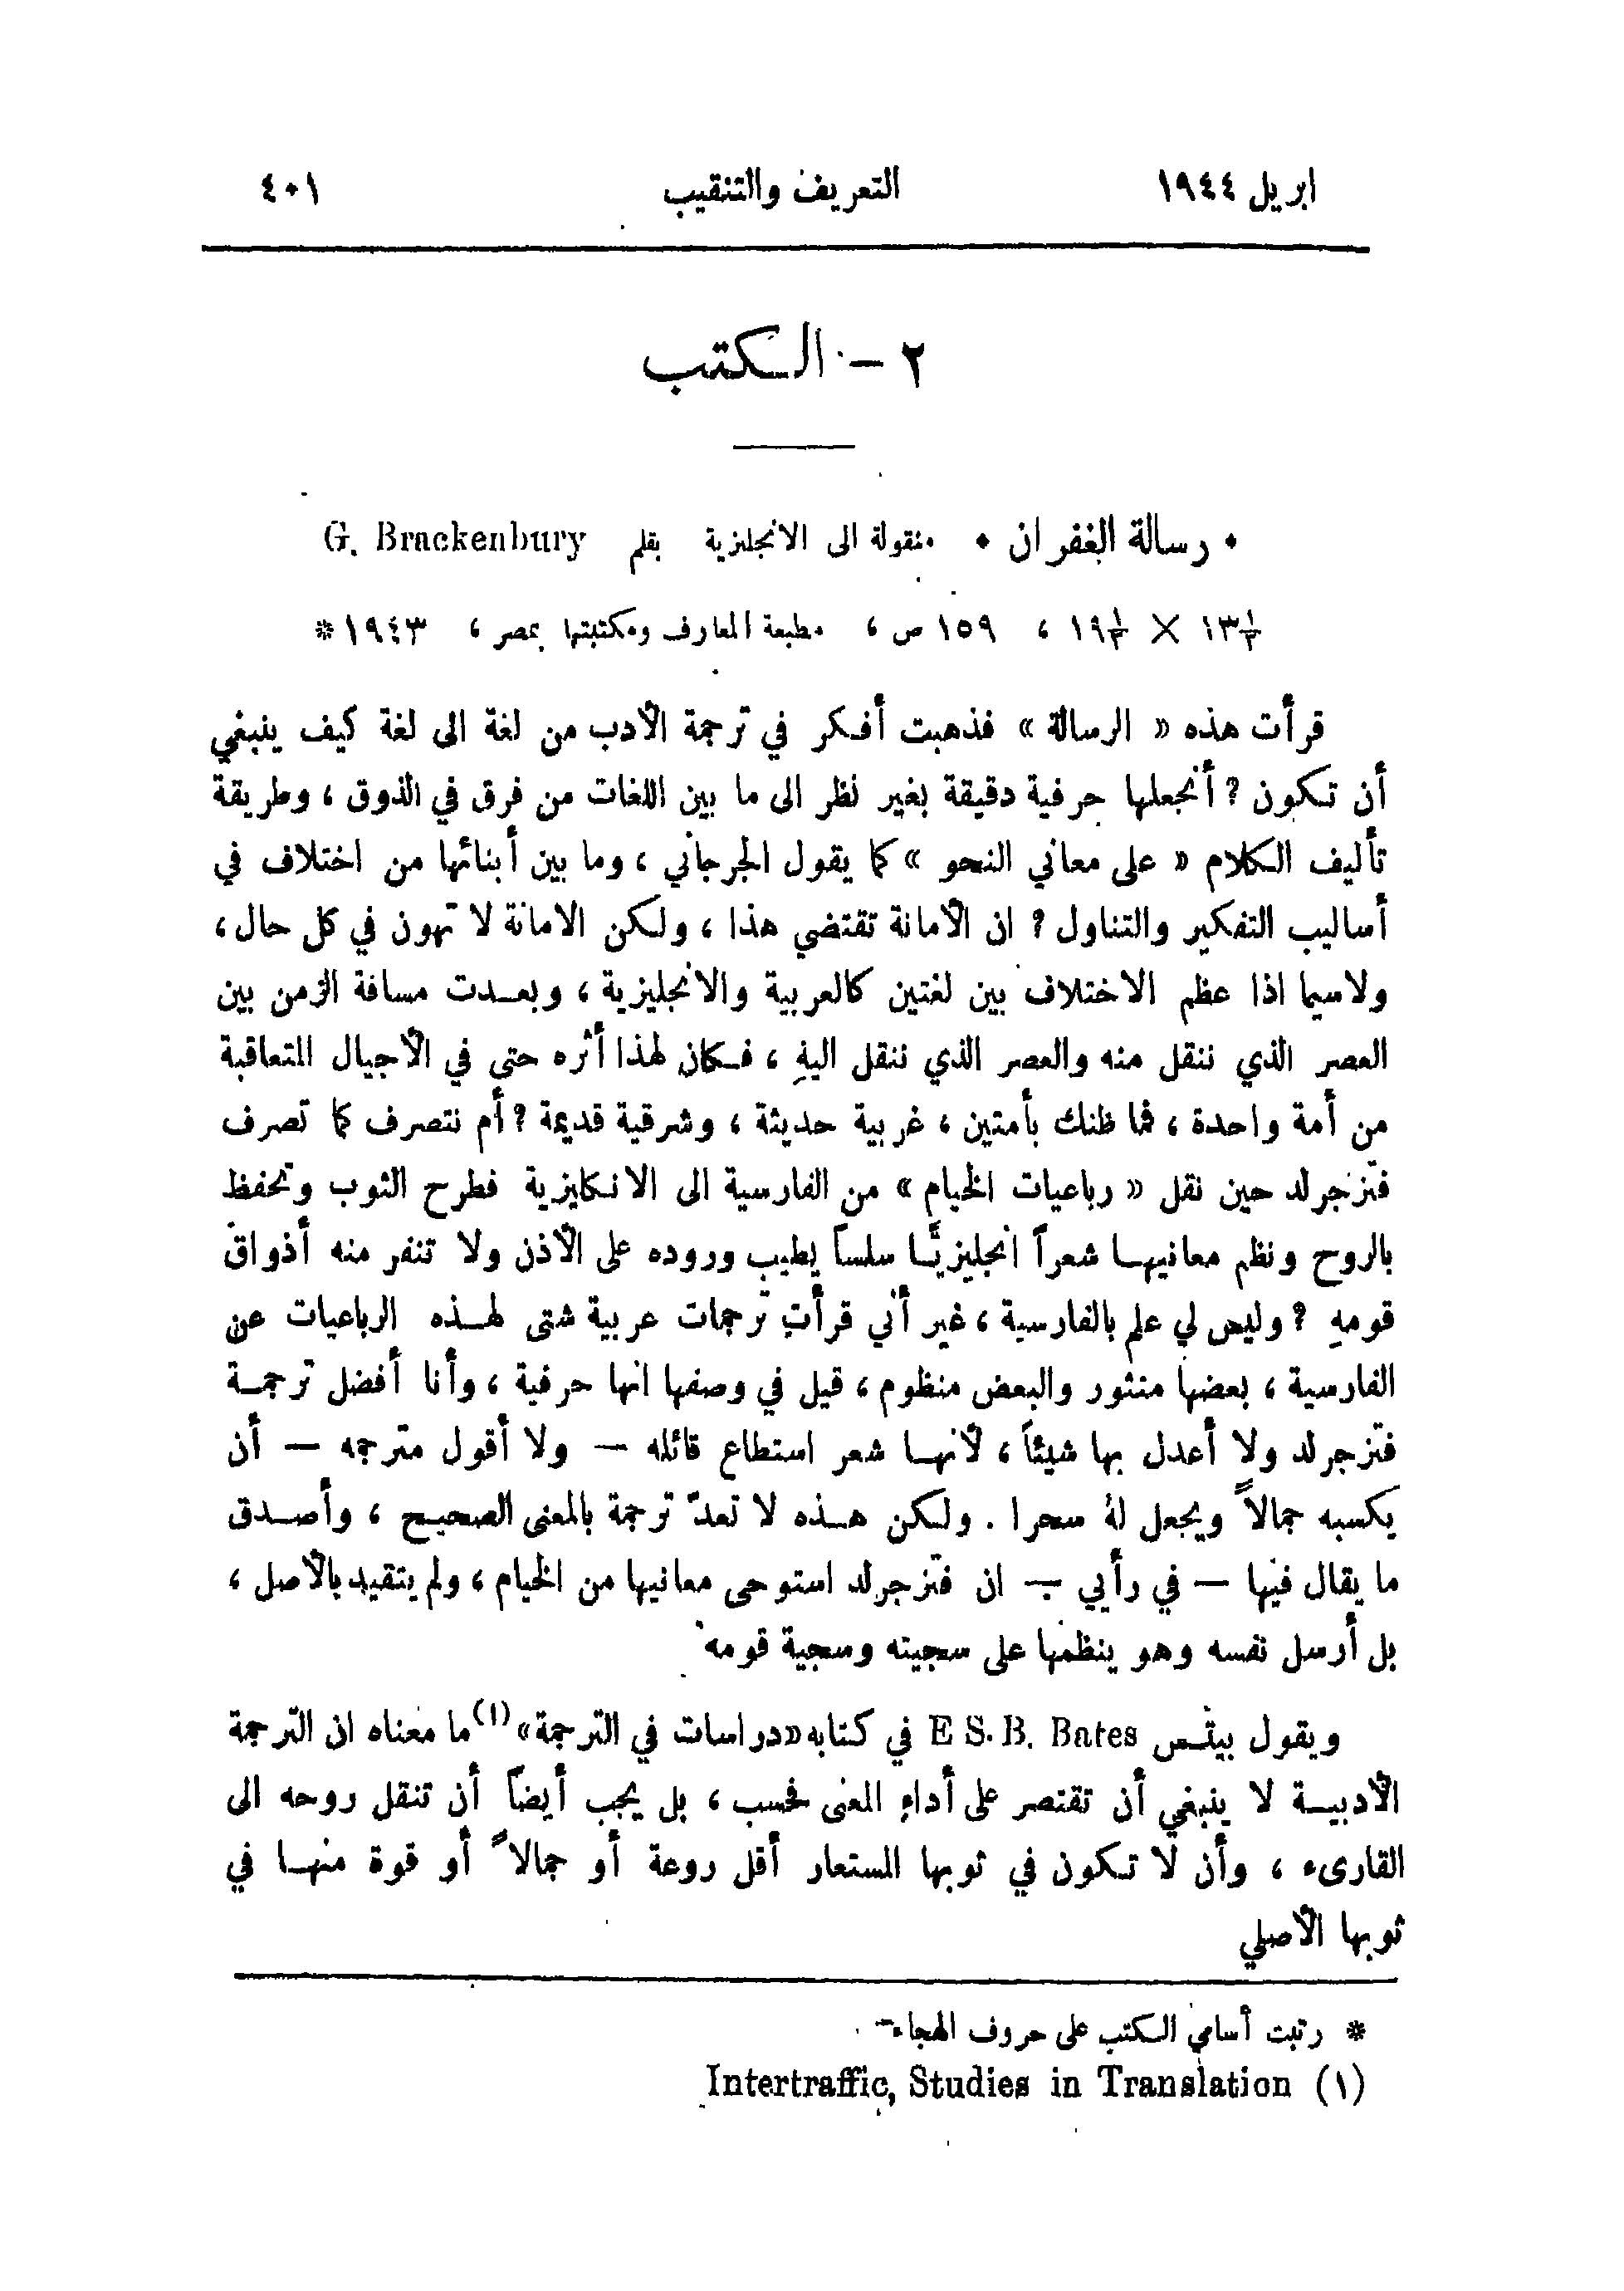 ابريل ١٩٤٤ التعريف والتنقيب ٤٠١
٢ - الكتب
• رسالة الغفران • منقولة الى الانجليزية بقلم G. Brackenbury
١٣½ × ١٩½ ، ١٥٩ ص ، مطبعة المعارف ومكتبتها بمصر ، ١٩٤٣*
قرأت هذه « الرسالة » فذهبت أفكر في ترجمة الأدب من لغة الى لغة كيف ينبغي
أن تكون ? أنجعلها حرفية دقيقة بغير نظر الى ما بين اللغات من فرق في الذوق ، وطريقة
تأليف الكلام « على معاني النحو » كما يقول الجرجاني ، وما بين أبنائها من اختلاف في
أساليب التفكير والتناول ? ان الأمانة تقتضي هذا ، ولكن الامانة لا تهون في كل حال ،
ولاسيما اذا عظم الاختلاف بين لغتين كالعربية والانجليزية ، وبعدت مسافة الزمن بين
العصر الذي ننقل منه والعصر الذي ننقل اليهِ ، فكان لهذا أثره حتى في الأجيال المتعاقبة
من أمة واحدة ، فما ظنك بأمتين ، غربية حديثة ، وشرقية قديمة ? أم نتصرف كما تصرف
فتزجرلد حين نقل « رباعيات الخيام » من الفارسية الى الانكليزية فطرح الثوب وتحفظ
بالروح ونظم معانيها شعراً انجليزيًّا سلساً يطيب وروده على الأذن ولا تنفر منه أذواق
قومهِ ? وليس لي علم بالفارسية ، غير أني قرأت ترجمات عربية شتى لهذه الرباعيات عن
الفارسية ، بعضها منثور والبعض منظوم ، قيل في وصفها انها حرفية ، وأنا أفضل ترجمة
فتزجرلد ولا أعدل بها شيئاً ، لأنها شعر استطاع قائله — ولا أقول مترجمه — أن
يكسبه جمالاً ويجعل لهُ سحرا . ولكن هذه لا تعدّ ترجمة بالمعنى الصحيح ، وأصدق
ما يقال فيها — في رأيي — ان فتزجرلد استوحى معانيها من الخيام ، ولم يتقيد بالأصل ،
بل أرسل نفسه وهو ينظمها على سجيته وسجية قومه
ويقول بيتس E S. B. Bates في كتابه «دراسات في الترجمة» (١) ما معناه ان الترجمة
الأدبية لا ينبغي أن تقتصر على أداء المعنى فحسب ، بل يجب أيضاً أن تنقل روحه الى
القارىء ، وأن لا تكون في ثوبها المستعار أقل روعة أو جمالاً أو قوة منها في
ثوبها الأصلي
* رتبت أسامي الكتب على حروف الهجاء
(١) Intertraffic, Studies in Translation